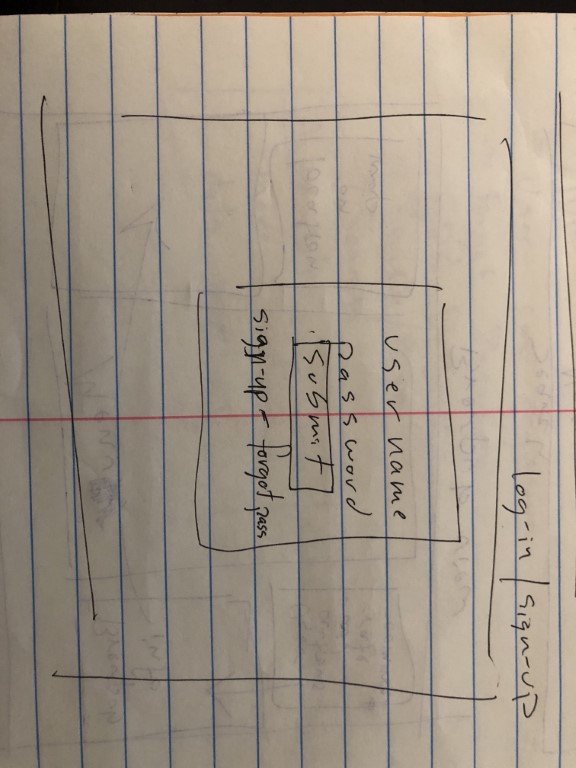 log-in | sign-up
user name
password
submit
sign-up - forgot pass